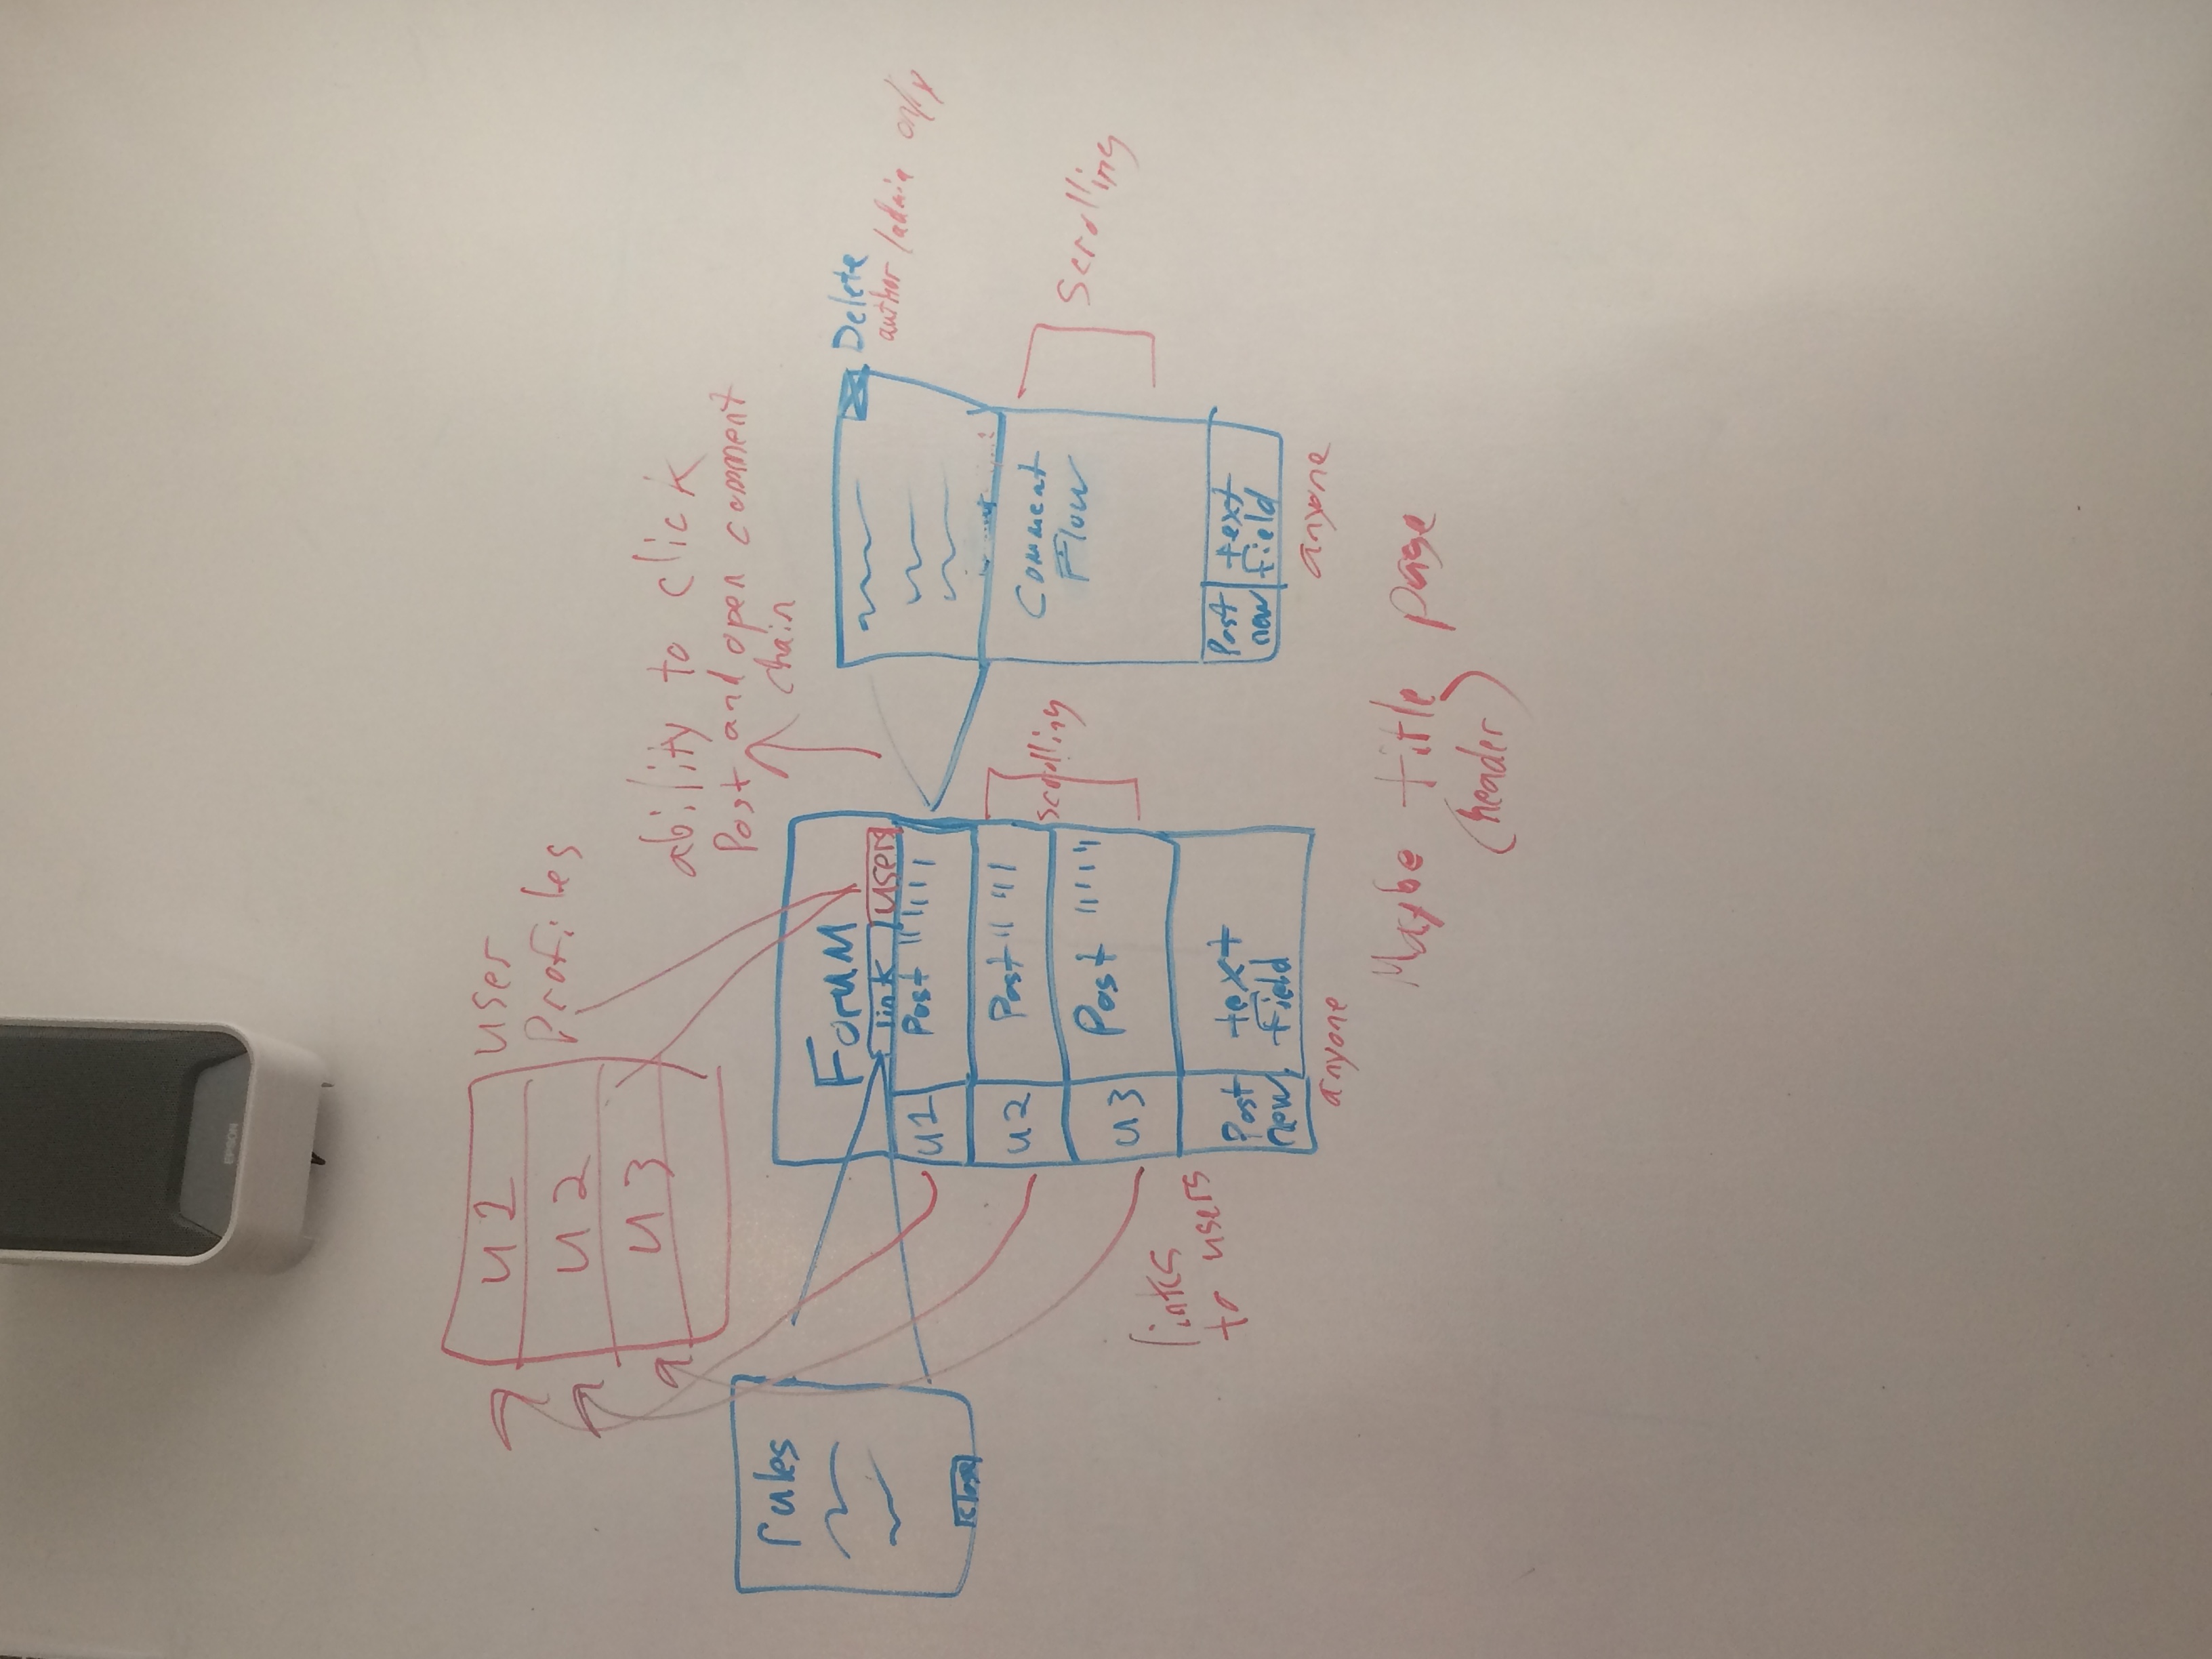 EPSON
u1
u2
u3
user
Profiles
ability to click
Post and open comment
chain
rules
close
Forum
link
users
u1
Post
u2
Post
u3
Post
scrolling
links
to users
Post
new
text
field
anyone
Delete
author/admin only
Comment
Flow
Scrolling
Post
new
text
field
anyone
Maybe title page
(header)